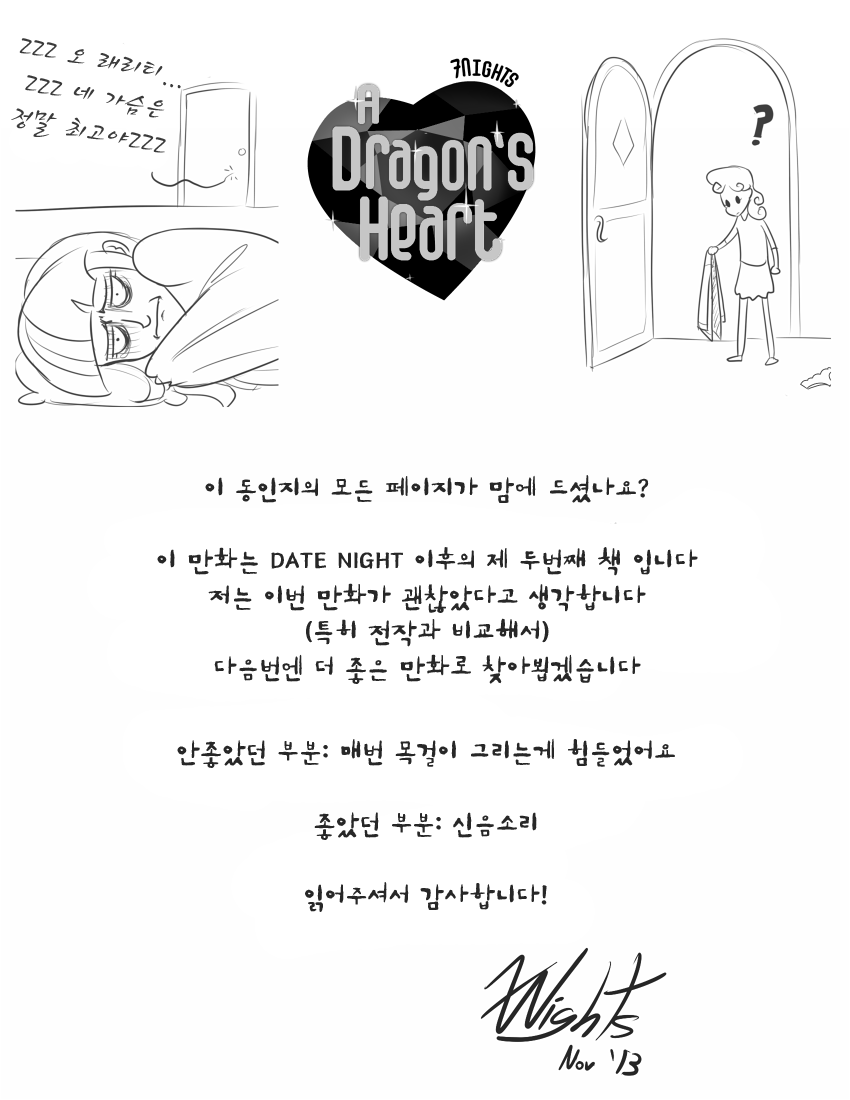 ZZZ 오 래리티...
ZZZ 네 가슴은
정말 최고야ZZZ
7NIGHTS
A
Dragon's
Heart
?
이 동인지의 모든 페이지가 맘에 드셨나요?
이 만화는 DATE NIGHT 이후의 제 두번째 책 입니다
저는 이번 만화가 괜찮았다고 생각합니다
(특히 전작과 비교해서)
다음번엔 더 좋은 만화로 찾아뵙겠습니다
안좋았던 부분: 매번 목걸이 그리는게 힘들었어요
좋았던 부분: 신음소리
읽어주셔서 감사합니다!
7Nights
Nov '13